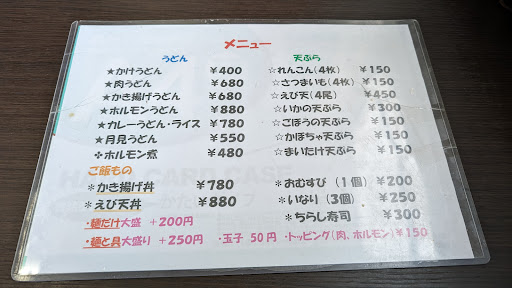 メニュー
うどん
★かけうどん ￥400
★肉うどん ￥680
★かき揚げうどん ￥680
★ホルモンうどん ￥880
★カレーうどん・ライス ￥780
★月見うどん ￥550
✣ホルモン煮 ￥480
天ぷら
☆れんこん(4枚) ￥150
☆さつまいも(4枚) ￥150
☆えび天(4尾) ￥450
☆いかの天ぷら ￥300
☆ごぼうの天ぷら ￥150
☆かぼちゃ天ぷら ￥150
☆まいたけ天ぷら ￥150
ご飯もの
＊かき揚げ丼 ￥780
＊えび天丼 ￥880
＊おむすび（1個）￥200
＊いなり（3個）、￥250
＊ちらし寿司 ￥300
・麺だけ大盛 +200円
・麺と具大盛り +250円 ・玉子 50円 ・トッピング（肉、ホルモン）￥150
HARD CARD CASE